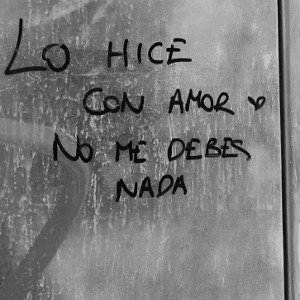 LO HICE
CON AMOR
NO ME DEBES
NADA